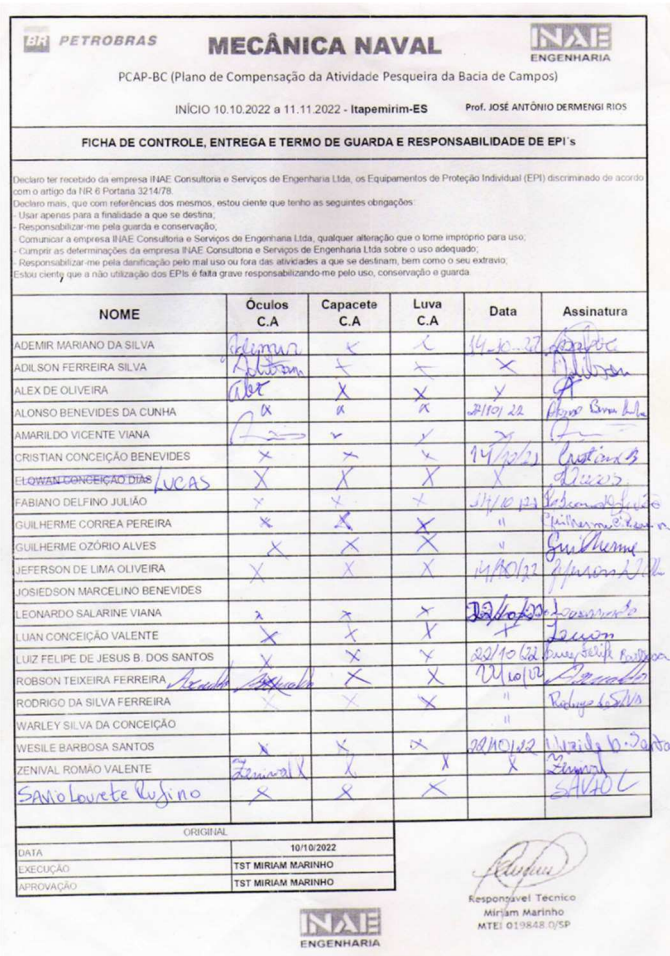 BR PETROBRAS
MECÂNICA NAVAL
INAE
ENGENHARIA
PCAP-BC (Plano de Compensação da Atividade Pesqueira da Bacia de Campos)
INÍCIO 10.10.2022 a 11.11.2022 - Itapemirim-ES Prof. JOSÉ ANTÔNIO DERMENGI RIOS
FICHA DE CONTROLE, ENTREGA E TERMO DE GUARDA E RESPONSABILIDADE DE EPI´s
Declaro ter recebido da empresa INAE Consultoria e Serviços de Engenharia Ltda, os Equipamentos de Proteção Individual (EPI) discriminado de acordo
com o artigo da NR 6 Portaria 3214/78.
Declaro mais, que com referências dos mesmos, estou ciente que tenho as seguintes obrigações:
- Usar apenas para a finalidade a que se destina;
- Responsabilizar-me pela guarda e conservação;
- Comunicar a empresa INAE Consultoria e Serviços de Engenharia Ltda, qualquer alteração que o torne impróprio para uso;
- Cumprir as determinações da empresa INAE Consultoria e Serviços de Engenharia Ltda sobre o uso adequado;
- Responsabilizar-me pela danificação pelo mal uso ou fora das atividades a que se destinam, bem como o seu extravio;
Estou ciente que a não utilização dos EPIs é falta grave responsabilizando-me pelo uso, conservação e guarda.
NOME Óculos C.A Capacete C.A Luva C.A Data Assinatura
ADEMIR MARIANO DA SILVA Ademir x x 14-10-22
ADILSON FERREIRA SILVA Adilson x x x Adilson
ALEX DE OLIVEIRA x x
ALONSO BENEVIDES DA CUNHA x x x 22/10/22
AMARILDO VICENTE VIANA x x x
CRISTIAN CONCEIÇÃO BENEVIDES x x x Cristian B
ELOWAN CONCEIÇÃO DIAS LUCAS X X X X Lucas
FABIANO DELFINO JULIÃO x x x
GUILHERME CORREA PEREIRA x x x " Guilherme
GUILHERME OZÓRIO ALVES X X X " Guilherme
JEFERSON DE LIMA OLIVEIRA X X X 14/10/22
JOSIEDSON MARCELINO BENEVIDES
LEONARDO SALARINE VIANA x x x 22/10/22
LUAN CONCEIÇÃO VALENTE X X X X Luan
LUIZ FELIPE DE JESUS B. DOS SANTOS x x x 22/10/22
ROBSON TEIXEIRA FERREIRA x x
RODRIGO DA SILVA FERREIRA x x x " Rodrigo da Silva
WARLEY SILVA DA CONCEIÇÃO "
WESILE BARBOSA SANTOS x x x 22/10/22 Wesile b. Santo
ZENIVAL ROMÃO VALENTE Zenival X X X X Zenival
SAVIO Lourete Rufino X X X SAVIO L
ORIGINAL
DATA 10/10/2022
EXECUÇÃO TST MIRIAM MARINHO
APROVAÇÃO TST MIRIAM MARINHO
Responsável Técnico
Miriam Marinho
MTEI 019848.0/SP
INAE
ENGENHARIA